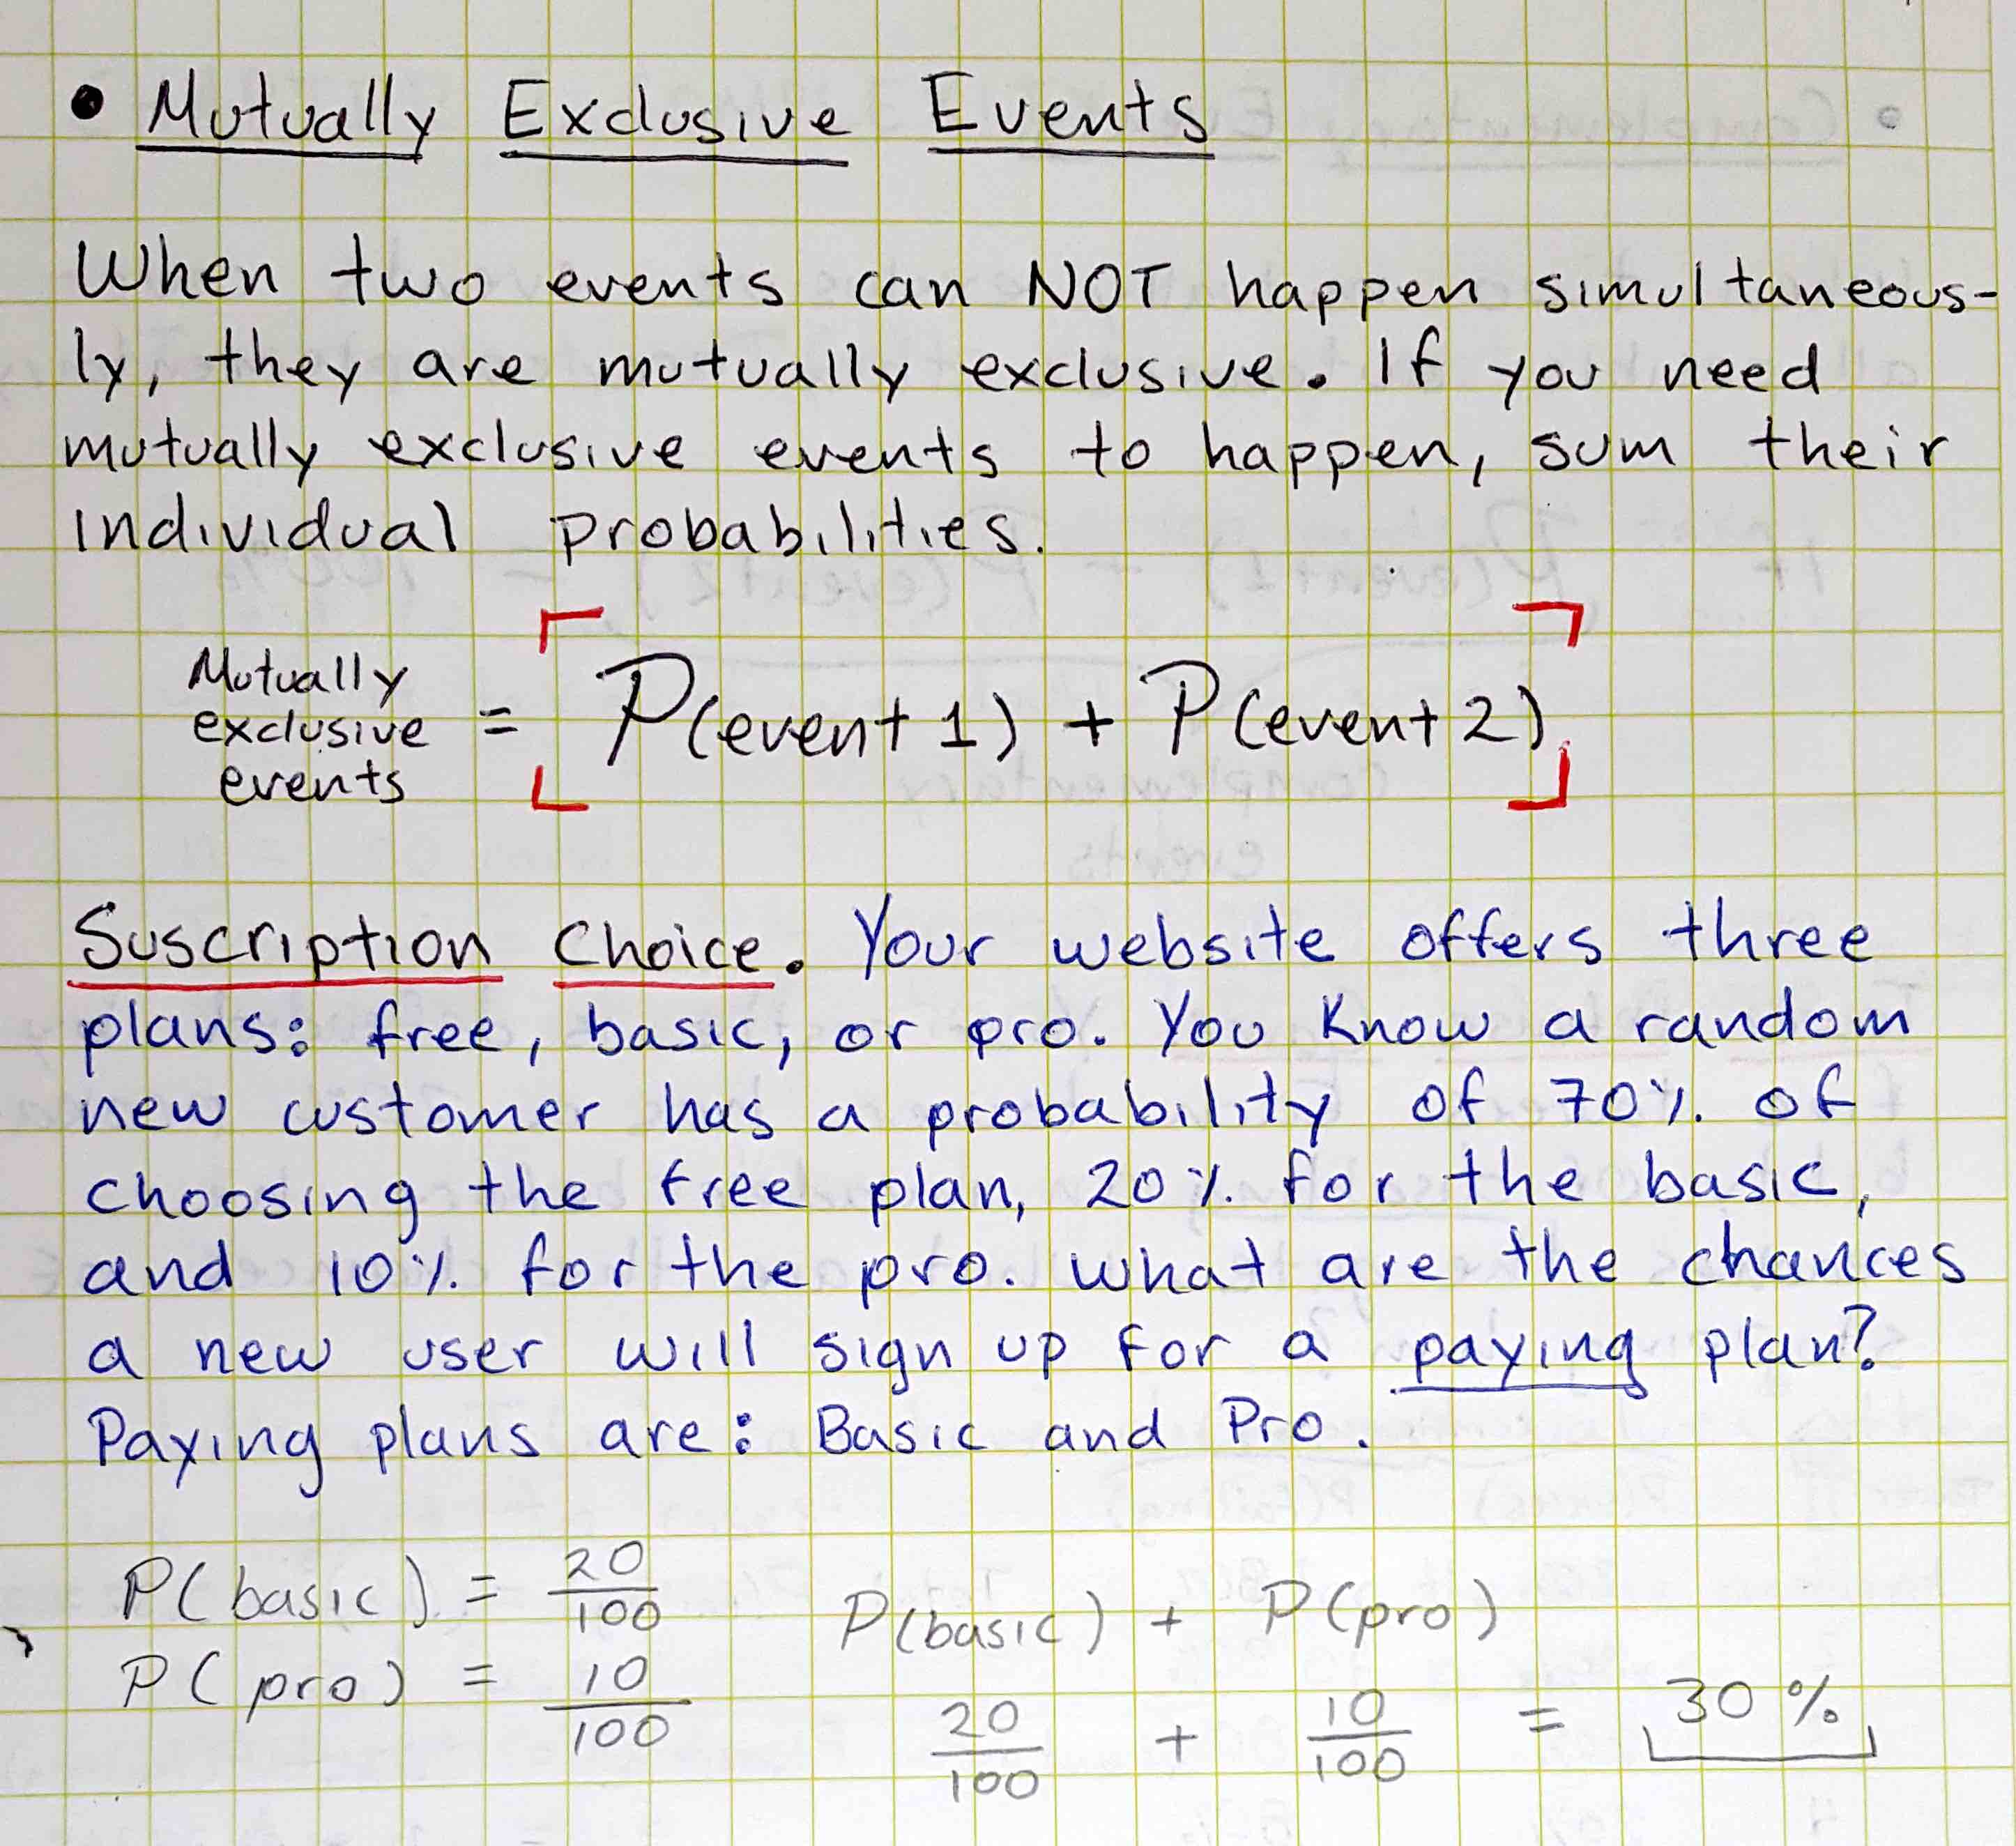 • Mutually Exclusive Events
When two events can NOT happen simultaneous-
ly, they are mutually exclusive. If you need
mutually exclusive events to happen, sum their
individual probabilities.
Mutually
exclusive
events
= P(event 1) + P(event 2)
Suscription Choice. Your website offers three
plans: free, basic, or pro. You know a random
new customer has a probability of 70% of
choosing the free plan, 20% for the basic,
and 10% for the pro. what are the chances
a new user will sign up for a paying plan?
Paying plans are: Basic and Pro.
P(basic) = 20/100
P(pro) = 10/100
P(basic) + P(pro)
20/100 + 10/100 = 30%